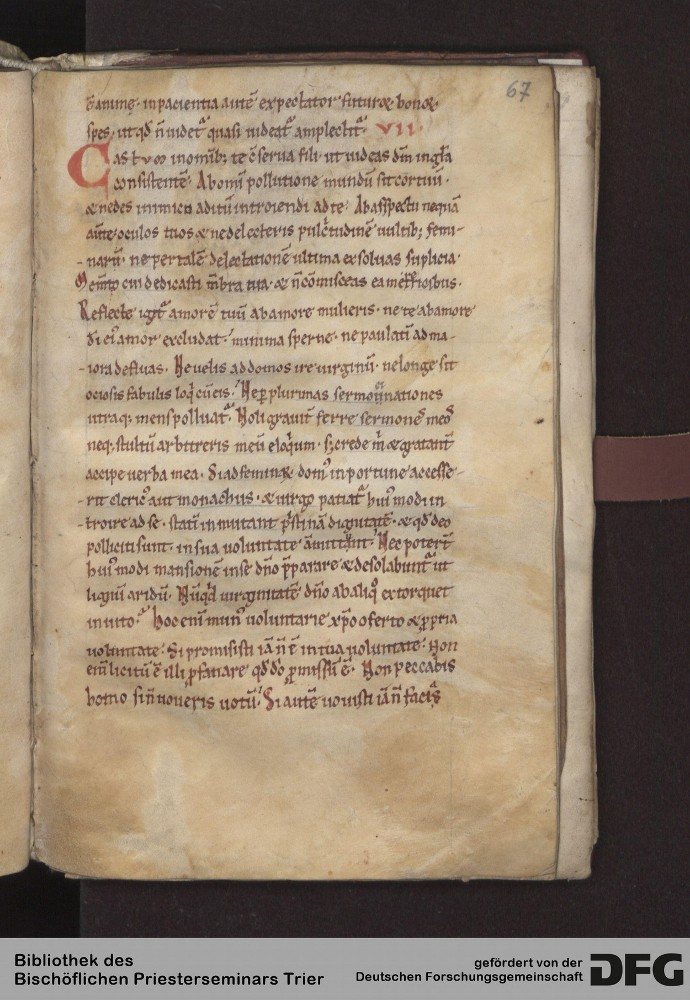 67
ē animę. in pacientia autē expectator futuroꝝ bonoꝝ
spes, ut qd̄ n̄ uidet᷑ quasi uideat᷑ amplectit᷑. VII.
Castum in omnibꝫ te cserua fili. ut uideas dm̄ in gl̄a
consistentē. Ab omi pollutione mundū sit cor tuū.
& ne des inimico aditū introiendi ad te. Ab asspectu nequā
auťe oculos tuos & ne delecteris pulcͥtudinē uultibꝫ femi-
- narū. ne per talē delectationē ultima exsoluas suplicia.
Mem̄to cui dedicasti m̄bra tua. & n̄ cōmisceas ea
Reflecte igt᷑ amorē tuū ab amore mulieris. ne te ab amore
di eiꝰ amor excludat. minima sperne. ne paulatī ad ma-
- iora defluas. Ne uelis ad domos ire uirginū. ne longe sit
ociosis fabulis loqͥ cū eis. Ne ꝑ plurimas sermocinationes
utraqꝫ mens polluat᷑. Noli grauit̄ ferre sermonē meū
neqꝫ stultū arbitreris meū eloqͥum. sꝫ crede m̄ & gratant̄
accipe uerba mea. Si ad feminaꝝ domū inportune accesse-
- rit clericꝰ aut monachus. & uirgo patiat᷑ huiꝰmodi in
- troire ad se. statī inmutant pͥstinā dignitatē. & qd̄ deo
polliciti sunt. in sua uoluntate āmittunt. Nec poterit̄
huiꝰmodi mansionē in se dn̄o p̄parare & desolabunt᷑ ut
lignū aridū. Nūqͥd uirginitatē dn̄o ab aliqͦ extorquet
inuito. Hoc enī munꝰ uoluntarie xp̄o oferto & ꝓpria
uoluntate. Si promisisti iā n̄ ē in tua uoluntate. Non
enī licitū ē illi ꝓfanare qd̄ dō ꝓmissū ē. Non peccabis
homo si n̄ uoueris uotū. Si autē uouisti iā n̄ facis
Bibliothek des
Bischöflichen Priesterseminars Trier
gefördert von der
Deutschen Forschungsgemeinschaft
DFG